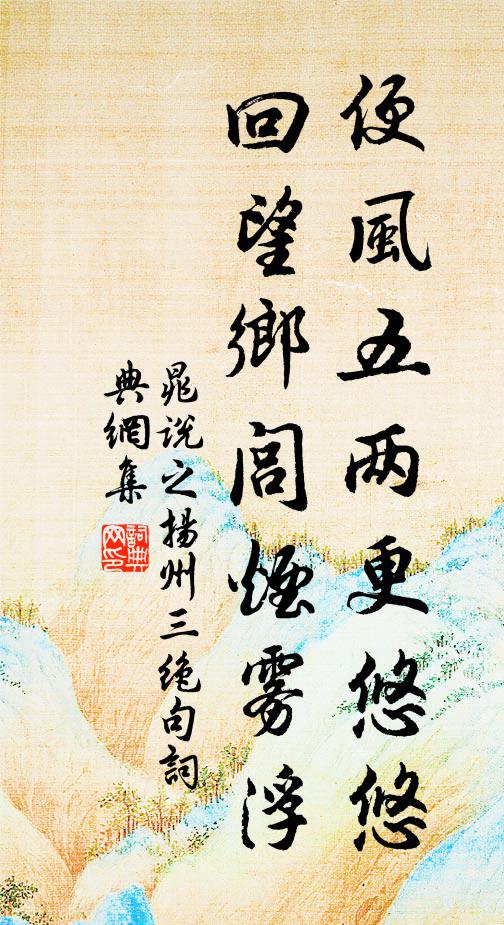 便風五两更悠悠
回望鄉閭煙雾浮
晁説之揚州三絶句詞
典網集
詞典网印